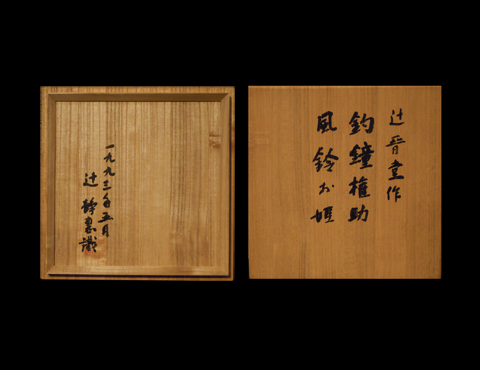 一九九三年五月
辻 静恵 識
辻晉堂作
釣鐘権助
風鈴お姫